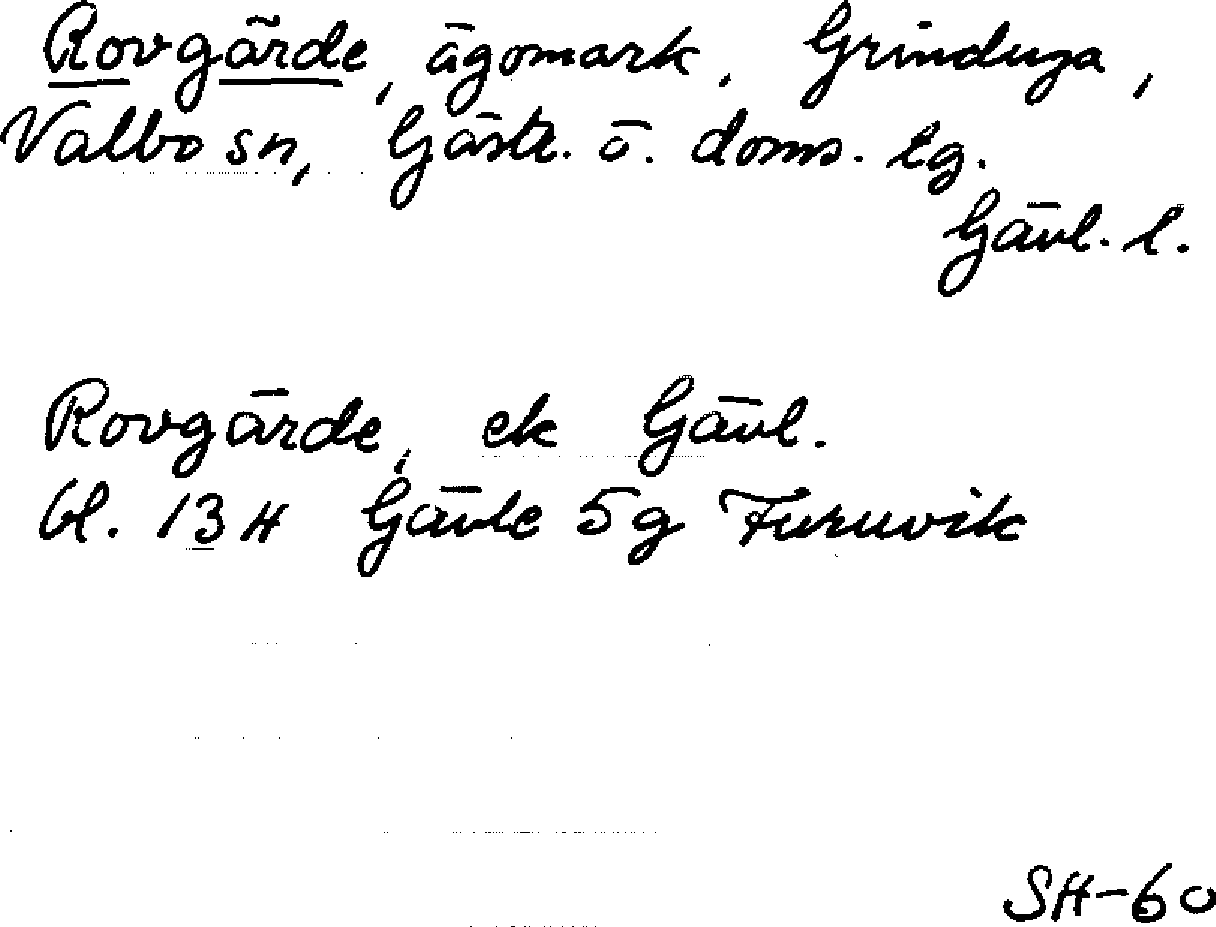 Rovgärde, ägomark, Grinduga,
Valbo sn, Gästr. ö. doms. lg.
Gävl. l.
Rovgärde, ek Gävl.
bl. 13 H Gävle 5 g Furuvik
SH-60